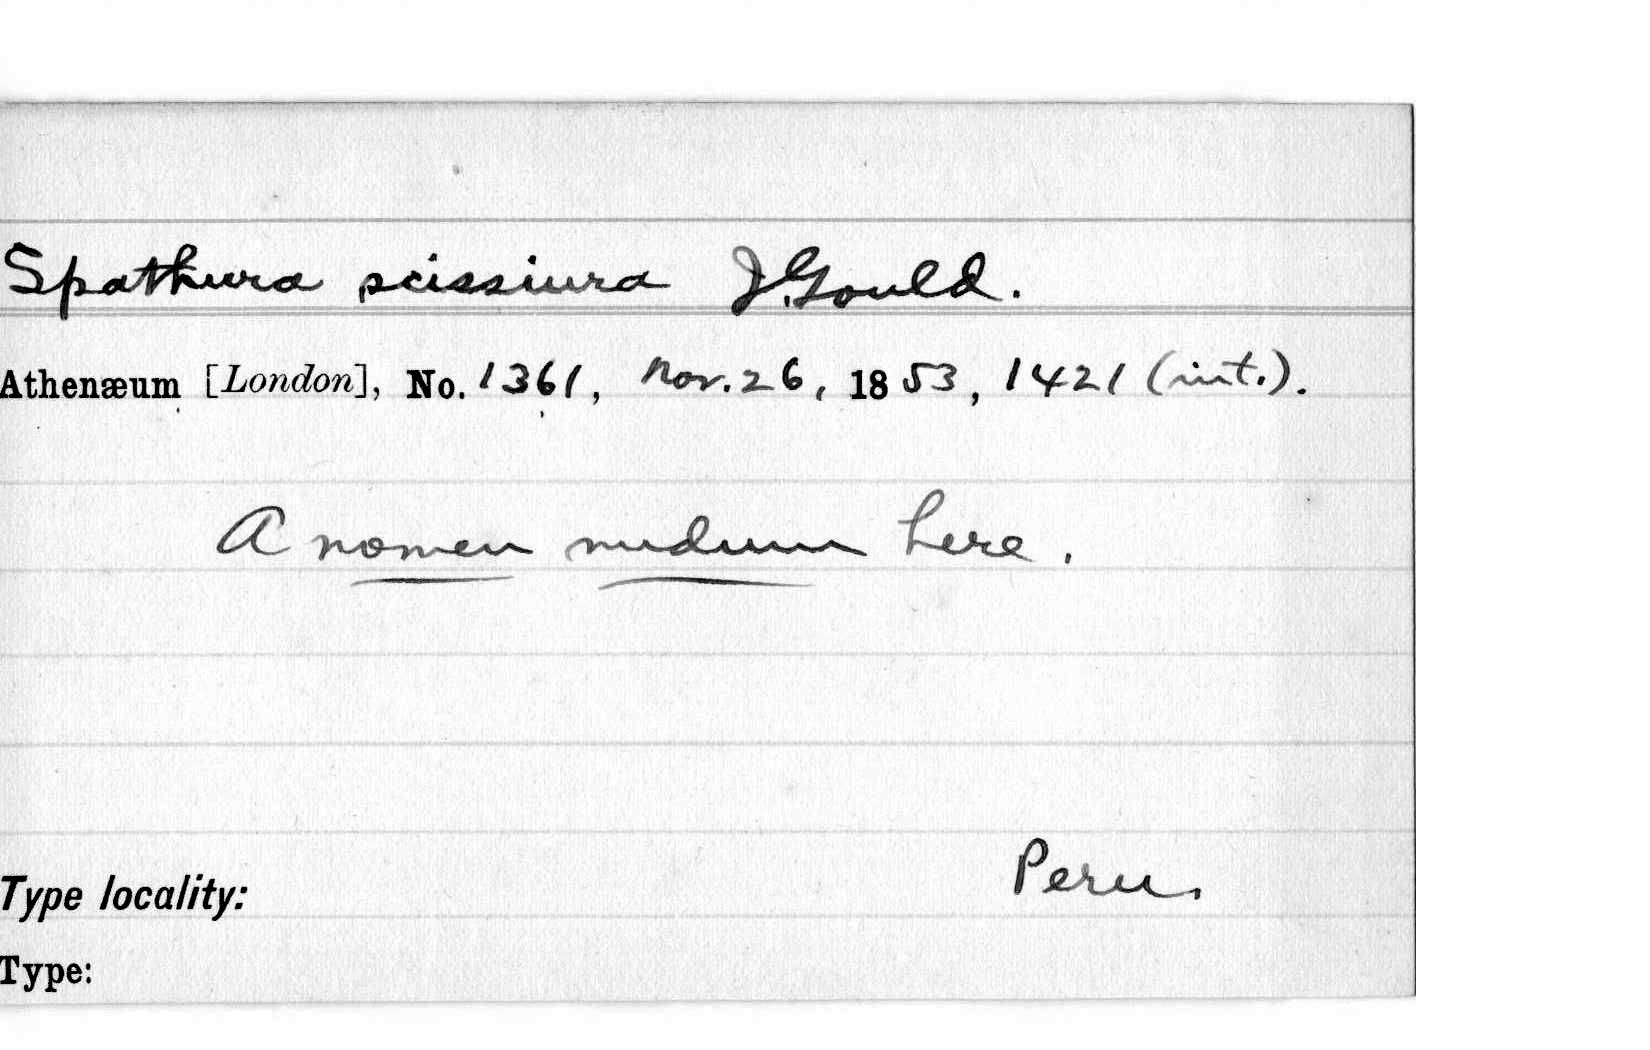 Spathura scissiura J. Gould.
Athenæum [London], No. 1361, Nov. 26, 1853, 1421 (int.).
A nomen nudum here.
Type locality: Peru.
Type: